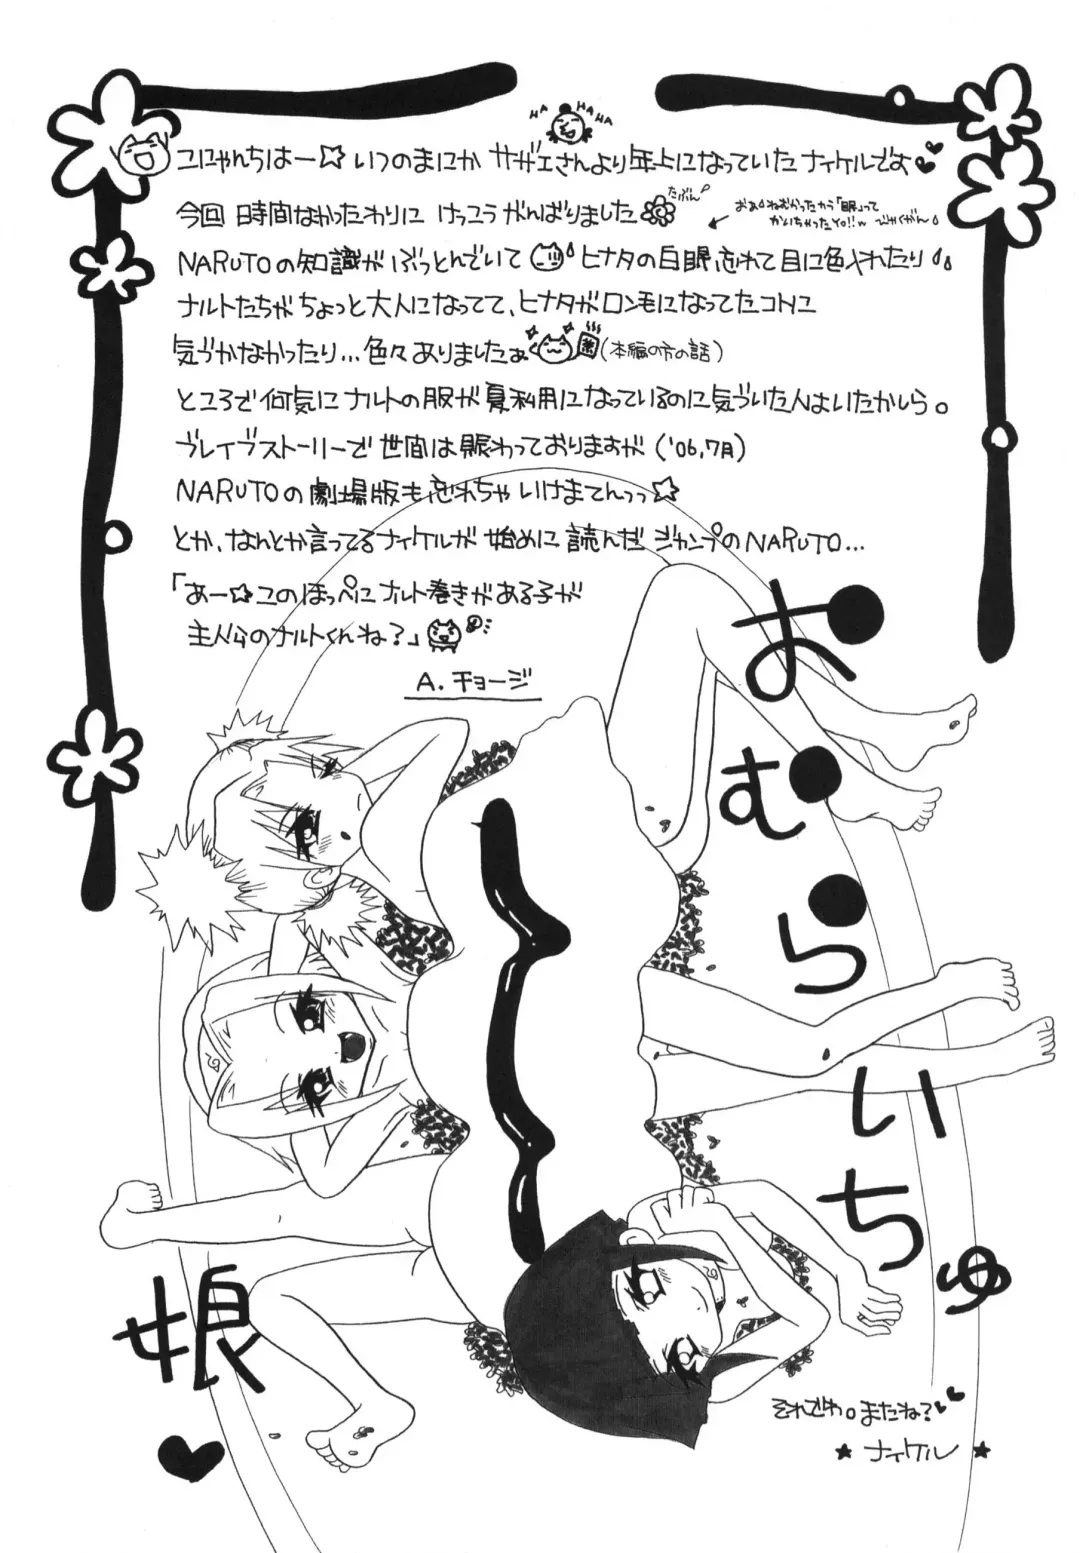 HA HA HA HA
こにゃんちはー☆ いつのまにか サザエさんより年上になっていたナイケルです♥
今回 時間なかったわりに けっこうがんばりました
たぶん。
おぉ!ねむかったから「眠」って
かいちゃったYo!!w
NARUTOの知識がぶっとんでいて ヒナタの白眼忘れて目に色入れたり
ナルトたちがちょっと大人になってて、ヒナタがロン毛になってたコトに
気づかなかったり…色々ありましたぁ (本編の方の話)
ところで何気にナルトの服が夏利用になっているのに気づいた人はいたかしら。
ブレイブストーリーで世間は賑わっておりますが ('06,7月)
NARUTOの劇場版も忘れちゃいけまてんっっ☆
とか、なんとか言ってるナイケルが 始めに 読んだ ジャンプのNARUTO…
「あー☆このほっぺにナルト巻きがある子が
主人公のナルトくんね?」
A. チョージ
おむらいちゅ
娘
それでわ。またね?♥
★ ナイケル ★